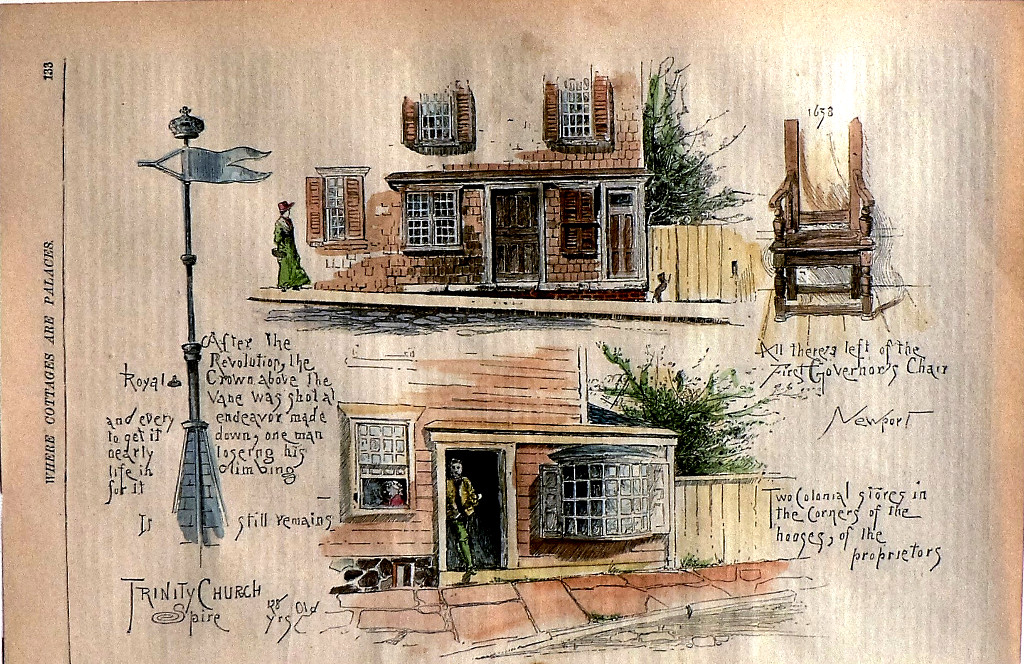 133
WHERE COTTAGES ARE PALACES.
1638
After the
Revolution, the
Royal Crown above the
Vane was shot at
and every endeavor made
to get it down, one man
nearly loseing his
life in climbing
for it
It still remains
TRINITY CHURCH
Spire 128 yrs Old
All there's left of the
First Governor's Chair
Newport
Two Colonial stores in
the Corners of the
houses, of the
proprietors